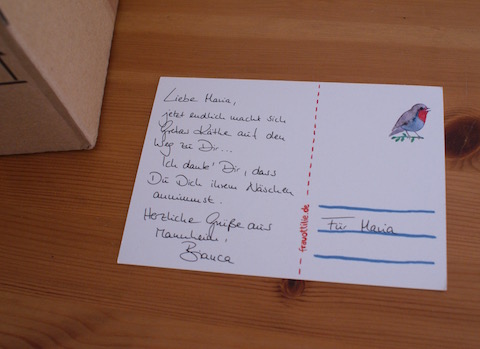 Liebe Maria,
jetzt endlich macht sich
Gretas Käthe auf den
Weg zu Dir...
Ich danke Dir, dass
Du Dich ihrem Näschen
annimmst.
Herzliche Grüße aus
Mannheim,
Bianca
frauottilie.de
Für Maria